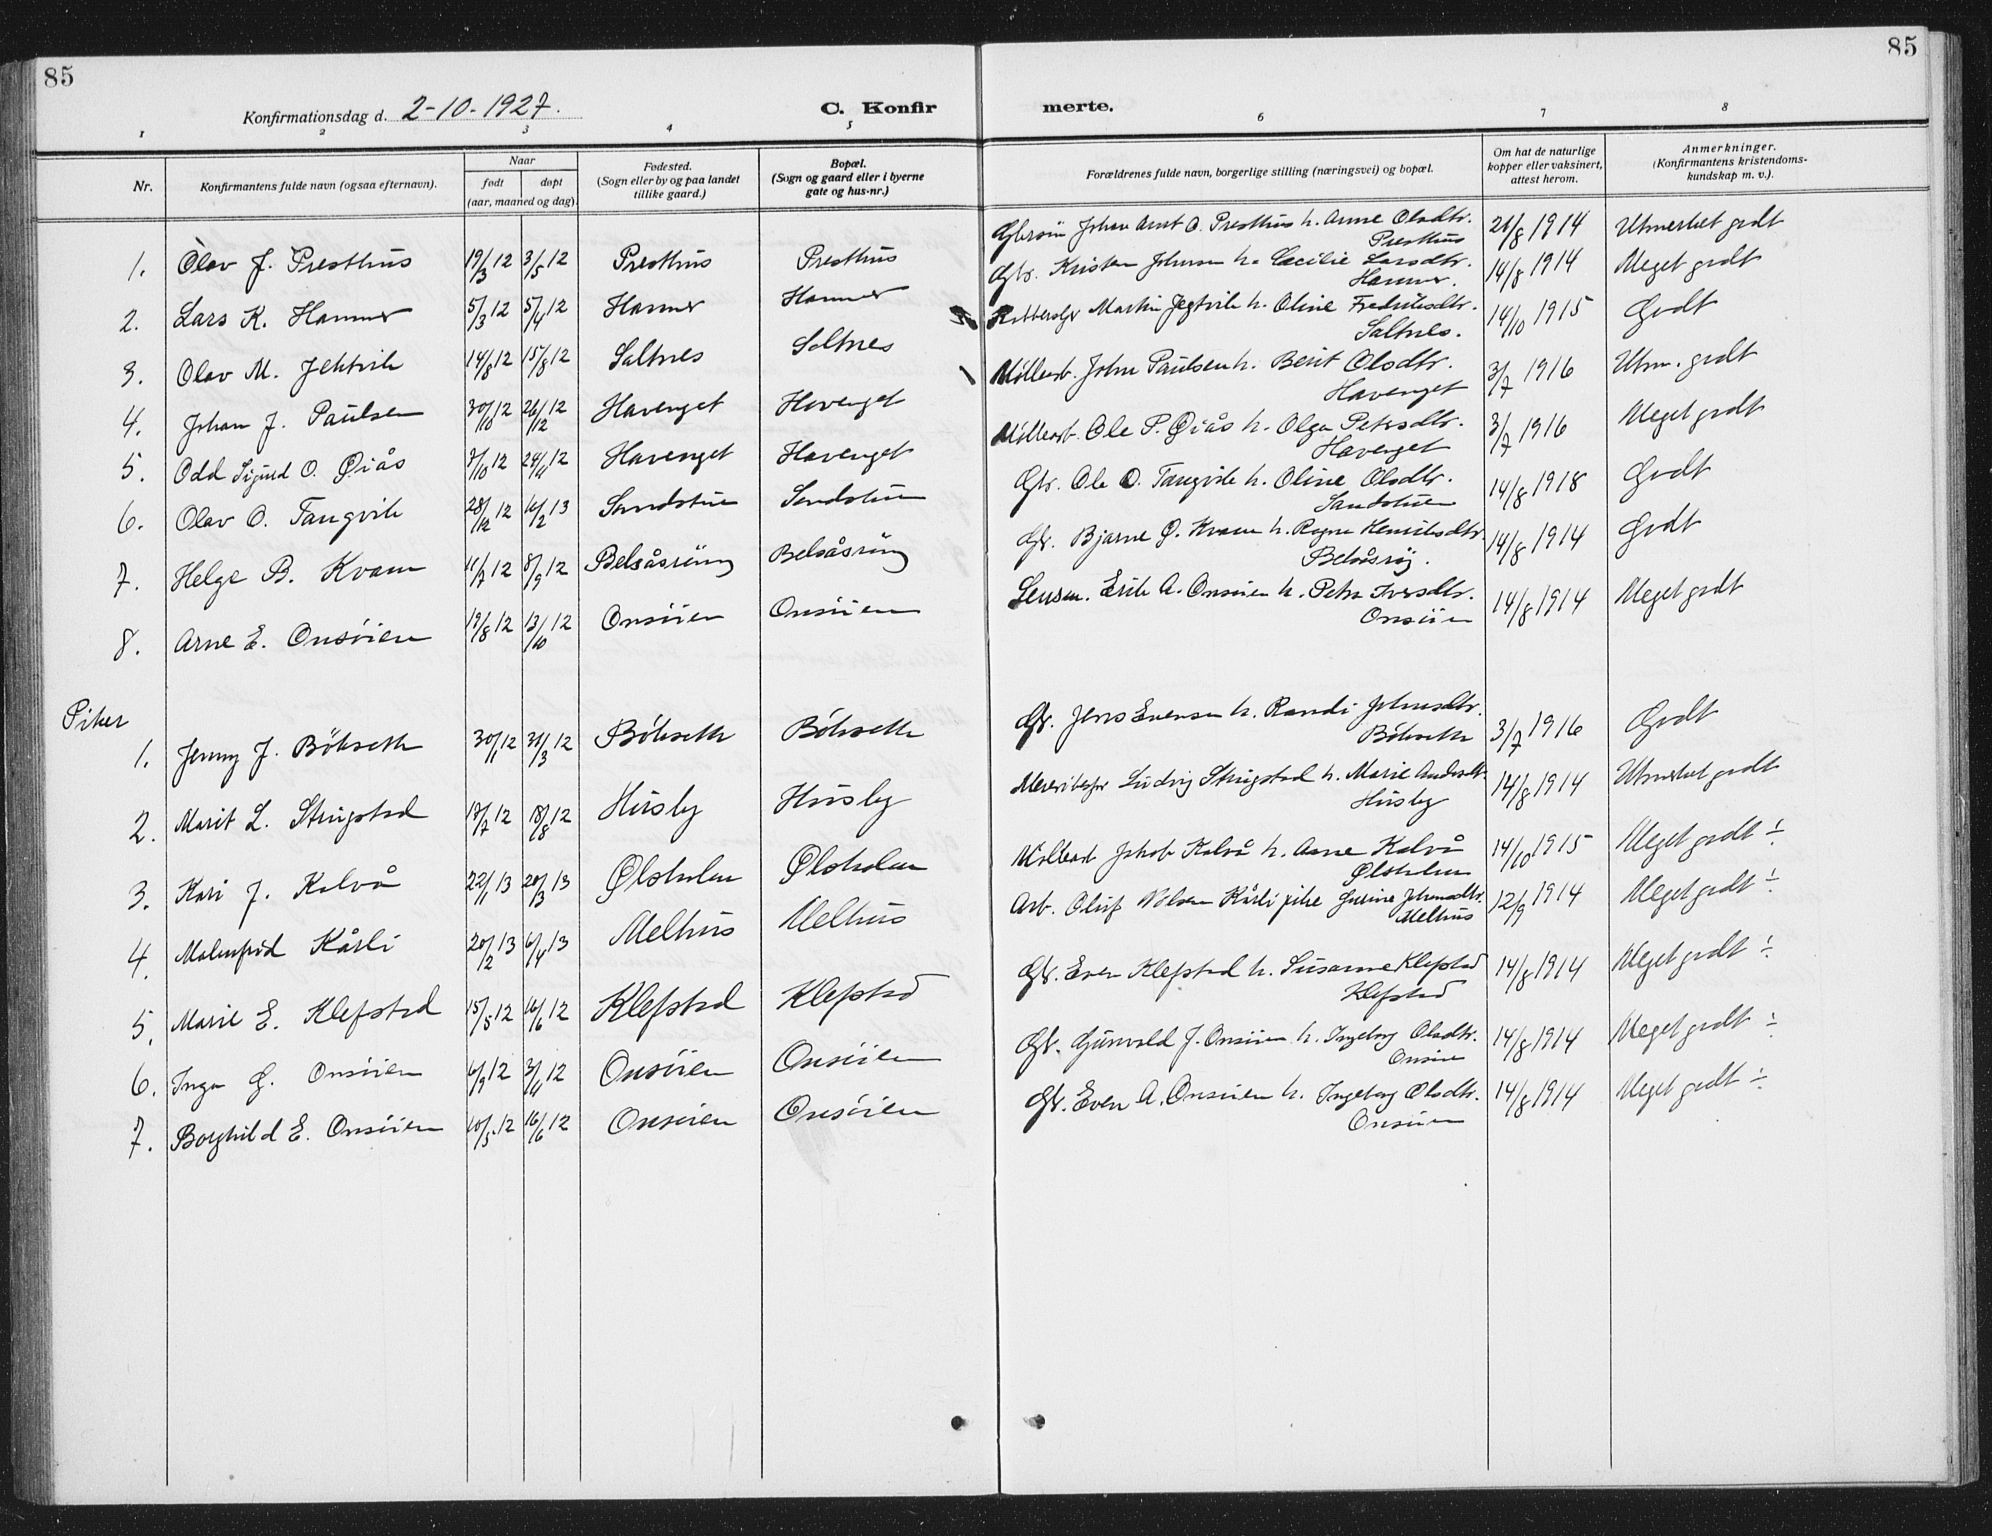 85
85
Konfirmationsdag d. 2-10-1927.
C. Konfir
merte.
1 2 3 4 5 6 7 8
Nr.
Konfirmantens fulde navn (ogsaa efternavn).
Naar
født
døpt
(aar, maaned og dag).
Fødested.
(Sogn eller by og paa landet
tillike gaard.)
Bopæl.
(Sogn og gaard eller i byerne
gate og hus-nr.)
Forældrenes fulde navn, borgerlige stilling (næringsvei) og bopæl.
Om hat de naturlige
kopper eller vaksinert,
attest herom.
Anmerkninger.
(Konfirmantens kristendoms-
kundskap m. v.).
1. Olav J. Presthus 19/3 12 3/5 12 Presthus Presthus Johan Arnt O. Presthus h. Anne Olsdtr. Presthus 21/8 1914 Utmerket godt
2. Lars K. Hammer 5/3 12 5/4 12 Hammer Hammer Gbr. Kristen Johnsen h. Cecilie Larsdtr. Hammer. 14/8 1914 Meget godt
3. Olav M. Jektvik 14/8 12 15/8 12 Saltnes Saltnes Martin Jegtvik h. Oline Fredriksdtr. Saltnes. 14/10 1915 Godt
4. Johan J. Paulsen 30/10 12 26/12 12 Havenget Havenget Møllearb. John Paulsen h. Berit Olsdtr. Havenget 3/7 1916 Utm. godt
5. Odd Sigurd O. Øiås 7/10 12 24/11 12 Havenget Havenget Møllearb. Ole P. Øiås h. Olga Petersdtr. Havenget 3/7 1916 Meget godt
6. Olav O. Tangvik 28/12 12 16/2 13 Sandstuen Sandstuen Gbr. Ole O. Tangvik h. Oline Olsdtr. Sandstuen 14/8 1918 Godt
7. Helge B. Kvam 11/7 12 8/9 12 Belsåsrøing Belsåsrøing Gbr. Bjarne O. Kvam h. Ragna Henriksdtr. Belsåsrøg. 14/8 1914 Godt
8. Arne E. Onsøien 19/8 12 13/10 12 Onsøien Onsøien Erik A. Onsøien h. Petra Iversdtr. Onsøien 14/8 1914 Meget godt
Piker
1. Jenny J. Bøkseth 30/1 12 31/3 12 Bøkseth Bøkseth Gbr. Jens Evensen h. Randi Johnsdtr. Bøkseth 3/7 1916 Godt
2. Marit L. Stingstad 18/7 12 18/8 12 Husby Husby Meieribestyr Ludvig Stingstad h. Marie Andersdtr. Husby 14/8 1914 Utmerket godt
3. Kari J. Kalvå 22/1 13 20/3 13 Ølsholm Ølsholm Møllearb Jakob Kalvå h. Anne Kalvå Ølsholm 14/10 1915 Meget godt ÷
4. Malmfrid Kårli 20/2 13 6/4 13 Melhus Melhus Arb. Oluf Kårli pike Gurine Johnsdtr. Melhus 12/9 1914 Meget godt ÷
5. Marie E. Klefstad 15/5 12 16/6 12 Klefstad Klefstad Gbr. Even Klefstad h. Susanne Klefstad Klefstad 14/8 1914 Meget godt ÷
6. Inga G. Onsøien 6/9 12 3/11 12 Onsøien Onsøien Gbr. Gunvald J. Onsøien h. Ingeborg Olsdtr. Onsøien 14/8 1914 Meget godt ÷
7. Borghild E. Onsøien 10/5 12 16/6 12 Onsøien Onsøien Gbr. Even A. Onsøien h. Ingeborg Olsdtr. Onsøien 14/8 1914 Meget godt ÷